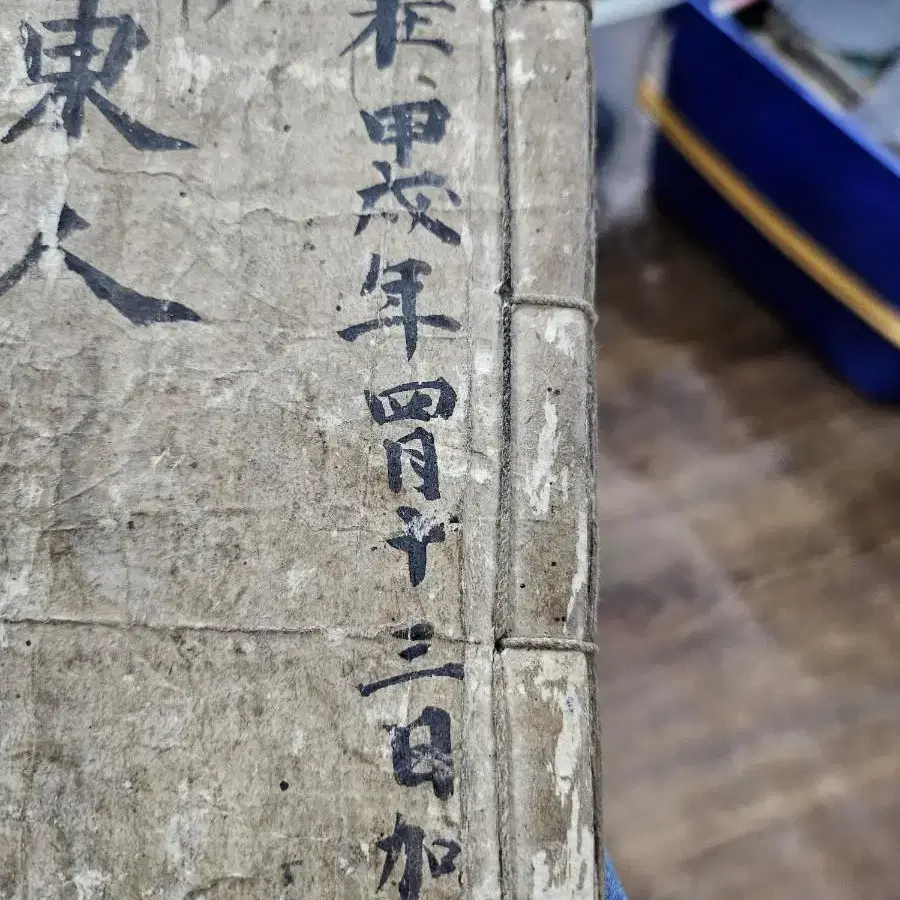 在甲戌年四月十三日加
東人